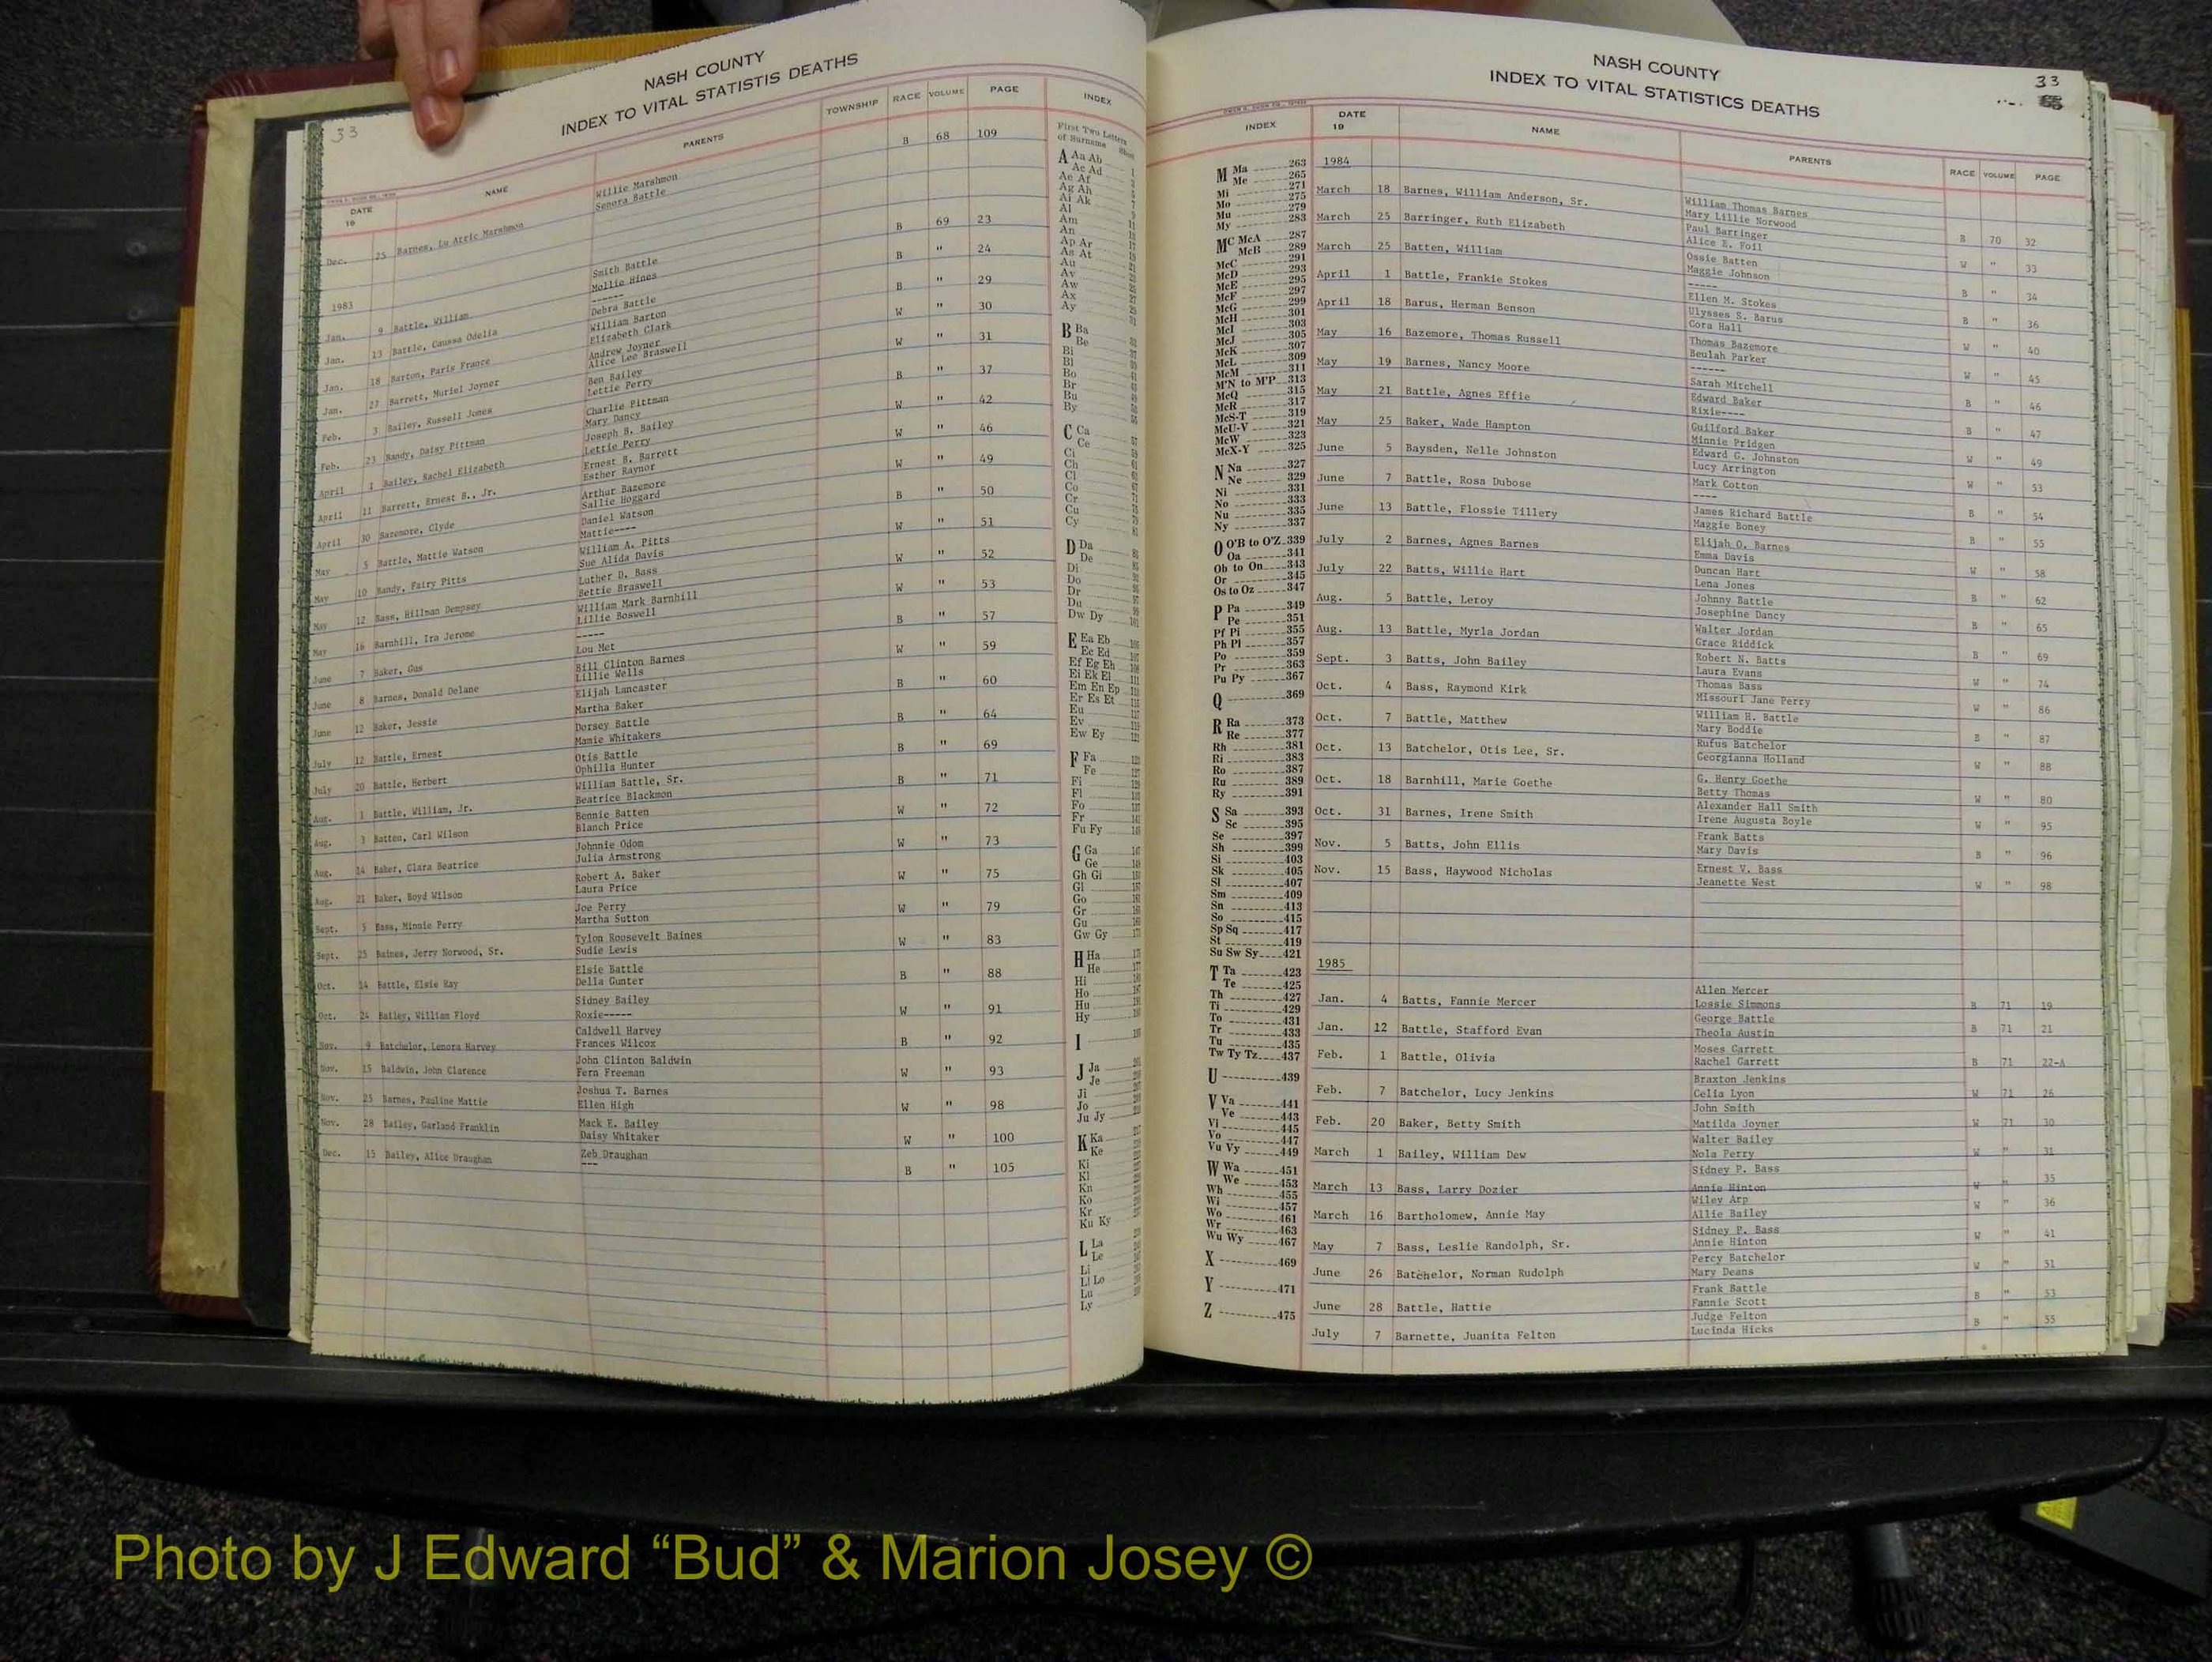 33
NASH COUNTY
INDEX TO VITAL STATISTIS DEATHS
DATE 19 NAME PARENTS TOWNSHIP RACE VOLUME PAGE
Willie Marshmon
Dec. 25 Barnes, Lu Attic Marshmon Senora Battle B 68 109
1983
Smith Battle
Jan. 9 Battle, William Mollie Hines B 69 23
------
Jan. 13 Battle, Caussa Odelia Debra Battle B " 24
William Barton
Jan. 18 Barton, Paris France Elizabeth Clark B " 29
Andrew Joyner
Jan. 27 Barrett, Muriel Joyner Alice Lee Braswell W " 30
Ben Bailey
Feb. 3 Bailey, Russell Jones Lettie Perry W " 31
Charlie Pittman
Feb. 23 Bandy, Daisy Pittman Mary Dancy B " 37
Joseph B. Bailey
April 1 Bailey, Rachel Elizabeth Lettie Perry W " 42
Ernest B. Barrett
April 11 Barrett, Ernest B., Jr. Esther Raynor W " 46
Arthur Bazemore
April 30 Bazemore, Clyde Sallie Hoggard W " 49
Daniel Watson
May 5 Battle, Mattie Watson Mattie---- B " 50
William A. Pitts
May 10 Bandy, Fairy Pitts Sue Alida Davis W " 51
Luther D. Bass
May 12 Bass, Hillman Dempsey Bettie Braswell W " 52
William Mark Barnhill
May 16 Barnhill, Ira Jerome Lillie Boswell W " 53
-----
June 7 Baker, Gus Lou Met B " 57
Bill Clinton Barnes
June 8 Barnes, Donald Delane Lillie Wells W " 59
Elijah Lancaster
June 12 Baker, Jessie Martha Baker B " 60
Dorsey Battle
July 12 Battle, Ernest Mamie Whitakers B " 64
Otis Battle
July 20 Battle, Herbert Ophilla Hunter B " 69
William Battle, Sr.
Aug. 1 Battle, William, Jr. Beatrice Blackmon B " 71
Bennie Batten
Aug. 3 Batten, Carl Wilson Blanch Price W " 72
Johnnie Odom
Aug. 14 Baker, Clara Beatrice Julia Armstrong W " 73
Robert A. Baker
Aug. 21 Baker, Boyd Wilson Laura Price W " 75
Joe Perry
Sept. 5 Bass, Minnie Perry Martha Sutton W " 79
Tylon Roosevelt Baines
Sept. 25 Baines, Jerry Norwood, Sr. Sudie Lewis W " 83
Elsie Battle
Oct. 14 Battle, Elsie Ray Della Gunter B " 88
Sidney Bailey
Oct. 24 Bailey, William Floyd Roxie----- W " 91
Caldwell Harvey
Nov. 9 Batchelor, Lenora Harvey Frances Wilcox B " 92
John Clinton Baldwin
Nov. 15 Baldwin, John Clarence Fern Freeman W " 93
Joshua T. Barnes
Nov. 25 Barnes, Pauline Mattie Ellen High W " 98
Mack E. Bailey
Nov. 28 Bailey, Garland Franklin Daisy Whitaker W " 100
Zeb Draughan
Dec. 15 Bailey, Alice Draughan --- B " 105
INDEX
First Two Letters of Surname Sheet
A Aa Ab
Ac Ad
Ae Af
Ag Ah
Ai Ak
Al
Am
An
Ap Ar
As At
Au
Av
Aw
Ax
Ay
B Ba
Be
Bi
Bl
Bo
Br
Bu
By
C Ca
Ce
Ci
Ch
Cl
Co
Cr
Cu
Cy
D Da
De
Di
Do
Dr
Du
Dw Dy
E Ea Eb
Ec Ed
Ef Eg Eh
Ei Ek El
Em En Ep
Er Es Et
Eu
Ev
Ew Ey
F Fa
Fe
Fi
Fl
Fo
Fr
Fu Fy
G Ga
Ge
Gh Gi
Gl
Go
Gr
Gu
Gw Gy
H Ha
He
Hi
Ho
Hu
Hy
I
J Ja
Je
Ji
Jo
Ju Jy
K Ka
Ke
Ki
Kl
Kn
Ko
Kr
Ku Ky
L La
Le
Li
Ll Lo
Lu
Ly
33
NASH COUNTY
INDEX TO VITAL STATISTICS DEATHS
INDEX
M Ma 263
Me 265
Mi 271
Mo 275
Mu 279
My 283
Mc McA 287
McB 289
McC 291
McD 293
McE 295
McF 297
McG 299
McH 301
McI 303
McJ 305
McK 307
McL 309
McM 311
M'N to M'P 313
McQ 315
McR 317
McS-T 319
McU-V 321
McW 323
McX-Y 325
N Na 327
Ne 329
Ni 331
No 333
Nu 335
Ny 337
O O'B to O'Z 339
Oa 341
Ob to On 343
Or 345
Os to Oz 347
P Pa 349
Pe 351
Pf Pi 355
Ph Pl 357
Po 359
Pr 363
Pu Py 367
Q 369
R Ra 373
Re 377
Rh 381
Ri 383
Ro 387
Ru 389
Ry 391
S Sa 393
Sc 395
Se 397
Sh 399
Si 403
Sk 405
Sl 407
Sm 409
Sn 413
So 415
Sp Sq 417
St 419
Su Sw Sy 421
T Ta 423
Te 425
Th 427
Ti 429
To 431
Tr 433
Tu 435
Tw Ty Tz 437
U 439
V Va 441
Ve 443
Vi 445
Vo 447
Vu Vy 449
W Wa 451
We 453
Wh 455
Wi 457
Wo 461
Wr 463
Wu Wy 467
X 469
Y 471
Z 475
DATE 19 NAME PARENTS RACE VOLUME PAGE
1984
William Thomas Barnes
March 18 Barnes, William Anderson, Sr. Mary Lillie Norwood B 70 32
Paul Barringer
March 25 Barringer, Ruth Elizabeth Alice E. Foil W " 33
Ossie Batten
March 25 Batten, William Maggie Johnson B " 34
-----
April 1 Battle, Frankie Stokes Ellen M. Stokes B " 36
Ulysses S. Barus
April 18 Barus, Herman Benson Cora Hall W " 40
Thomas Bazemore
May 16 Bazemore, Thomas Russell Beulah Parker W " 45
------
May 19 Barnes, Nancy Moore Sarah Mitchell B " 46
Edward Baker
May 21 Battle, Agnes Effie Rixie---- B " 47
Guilford Baker
May 25 Baker, Wade Hampton Minnie Pridgen W " 49
Edward G. Johnston
June 5 Baysden, Nelle Johnston Lucy Arrington W " 53
Mark Cotton
June 7 Battle, Rosa Dubose ---- B " 54
James Richard Battle
June 13 Battle, Flossie Tillery Maggie Boney B " 55
Elijah O. Barnes
July 2 Barnes, Agnes Barnes Emma Davis W " 58
Duncan Hart
July 22 Batts, Willie Hart Lena Jones B " 62
Johnny Battle
Aug. 5 Battle, Leroy Josephine Dancy B " 65
Walter Jordan
Aug. 13 Battle, Myrla Jordan Grace Riddick B " 69
Robert N. Batts
Sept. 3 Batts, John Bailey Laura Evans W " 74
Thomas Bass
Oct. 4 Bass, Raymond Kirk Missouri Jane Perry W " 86
William H. Battle
Oct. 7 Battle, Matthew Mary Boddie B " 87
Rufus Batchelor
Oct. 13 Batchelor, Otis Lee, Sr. Georgianna Holland W " 88
G. Henry Goethe
Oct. 18 Barnhill, Marie Goethe Betty Thomas W " 80
Alexander Hall Smith
Oct. 31 Barnes, Irene Smith Irene Augusta Boyle W " 95
Frank Batts
Nov. 5 Batts, John Ellis Mary Davis B " 96
Ernest V. Bass
Nov. 15 Bass, Haywood Nicholas Jeanette West W " 98
1985
Allen Mercer
Jan. 4 Batts, Fannie Mercer Lossie Simmons B 71 19
George Battle
Jan. 12 Battle, Stafford Evan Theola Austin B 71 21
Moses Garrett
Feb. 1 Battle, Olivia Rachel Garrett B 71 22-A
Braxton Jenkins
Feb. 7 Batchelor, Lucy Jenkins Celia Lyon W 71 26
John Smith
Feb. 20 Baker, Betty Smith Matilda Joyner W 71 30
Walter Bailey
March 1 Bailey, William Dew Nola Perry W " 31
Sidney P. Bass
March 13 Bass, Larry Dozier Annie Hinton W " 35
Wiley Arp
March 16 Bartholomew, Annie May Allie Bailey W " 36
Sidney P. Bass
May 7 Bass, Leslie Randolph, Sr. Annie Hinton W " 41
Percy Batchelor
June 26 Batchelor, Norman Rudolph Mary Deans W " 51
Frank Battle
June 28 Battle, Hattie Fannie Scott B " 53
Judge Felton
July 7 Barnette, Juanita Felton Lucinda Hicks B " 55
Photo by J Edward “Bud” & Marion Josey ©